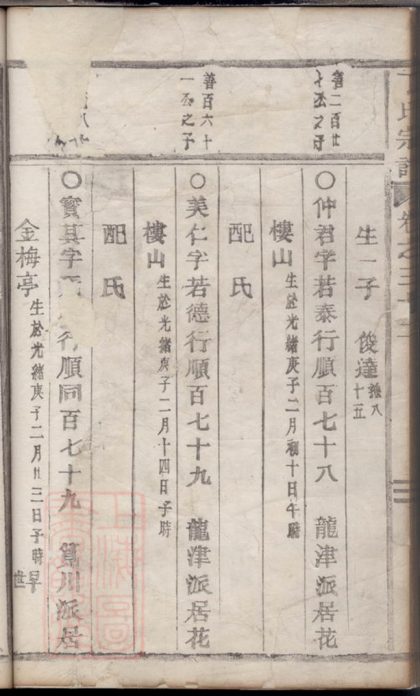 氏宗譜 卷之三十
生一子 俊達 換八十五
善二百廿七公之子
○仲君字若泰行順百七十八 龍津派居花
樓山 生於光緒庚子二月初十日午時
配氏
善百六十一公之子
○美仁字若德行順百七十九 龍津派居花
樓山 生於光緒庚子二月十四日子時
配氏
○寶其字 行順同百七十九 筤川派居
金梅亭 生於光緒庚子二月廿三日子時 早世